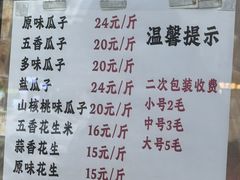 原味瓜子 24元/斤
五香瓜子 20元/斤
多味瓜子 20元/斤
盐瓜子 24元/斤
山核桃味瓜子 20元/斤
五香花生米 16元/斤
蒜香花生 15元/斤
原味花生 15元/斤
温馨提示
二次包装收费
小号2毛
中号3毛
大号5毛